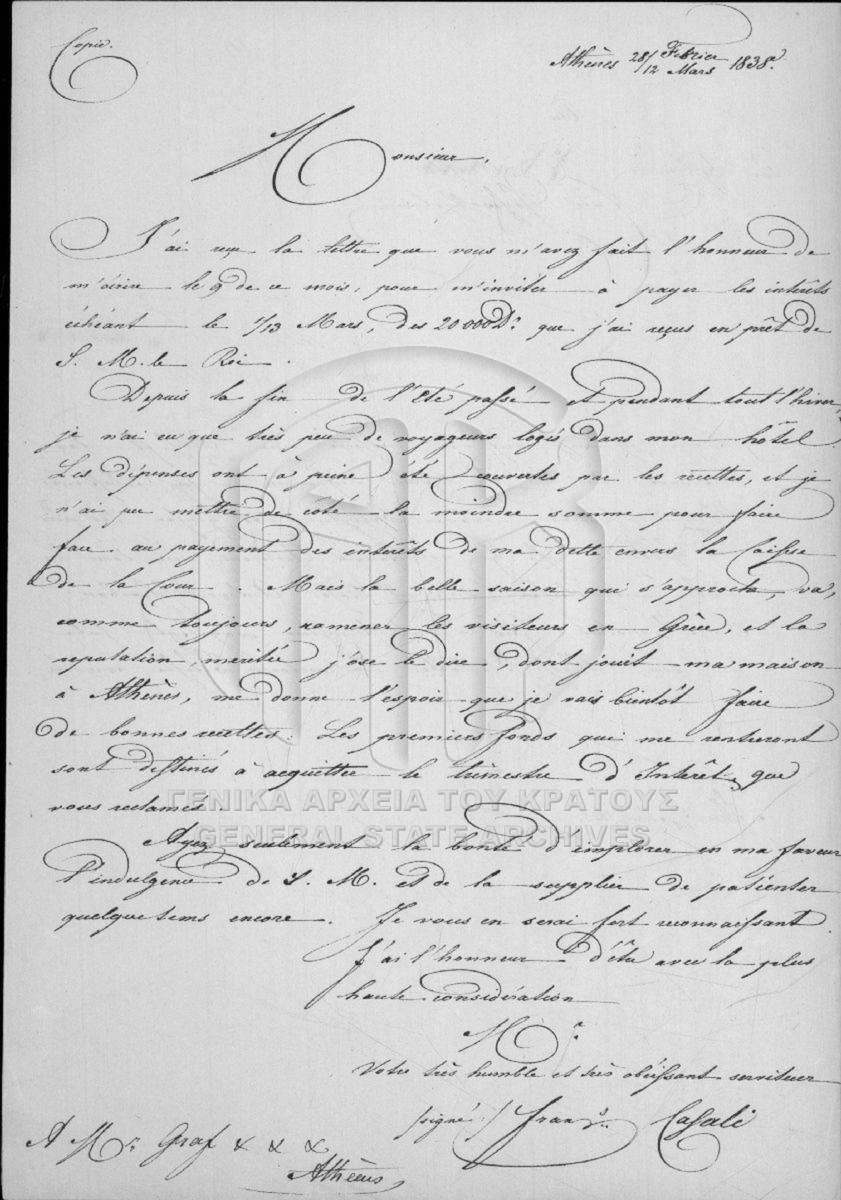 Copie.
Athènes 28/12 Febrier/Mars 1838.
Monsieur,
J'ai reçu la lettre que vous m'avez fait l'honneur de
m'écrire le 9 de ce mois, pour m'inviter à payer les intérêts
échéant le 1/13 Mars, des 20000 D. que j'ai reçus en prêt de
S. M. le Roi.
Depuis la fin de l'Eté passé et pendant tout l'hiver,
je n'ai eu que très peu de voyageurs logés dans mon hôtel.
Les dépenses ont à peine été couvertes par les recettes, et je
n'ai pu mettre de coté la moindre somme pour faire
face au payement des intérêts de ma dette envers la Caisse
de la Cour. Mais la belle saison qui s'approche, va,
comme toujours, ramener les visiteurs en Grèce, et la
reputation, meritée j'ose le dire, dont jouit ma maison
à Athènes, me donne l'espoir que je vais bientôt faire
de bonnes recettes. Les premiers fonds qui me rentreront
sont destinés à acquitter le trimestre d'Intérêts que
vous reclamez.
ΓΕΝΙΚΑ ΑΡΧΕΙΑ ΤΟΥ ΚΡΑΤΟΥΣ
GENERAL STATE ARCHIVES
Ayez seulement la bonté d'implorer en ma faveur
l'indulgence de S. M. et de la supplier de patienter
quelque tems encore. Je vous en serai fort reconnaissant.
J'ai l'honneur d'être avec la plus
haute considération
Mr.
Votre très humble et très obéissant serviteur
/signé:/ Frans. Casali
A Mr. Graf x x x
Athènes